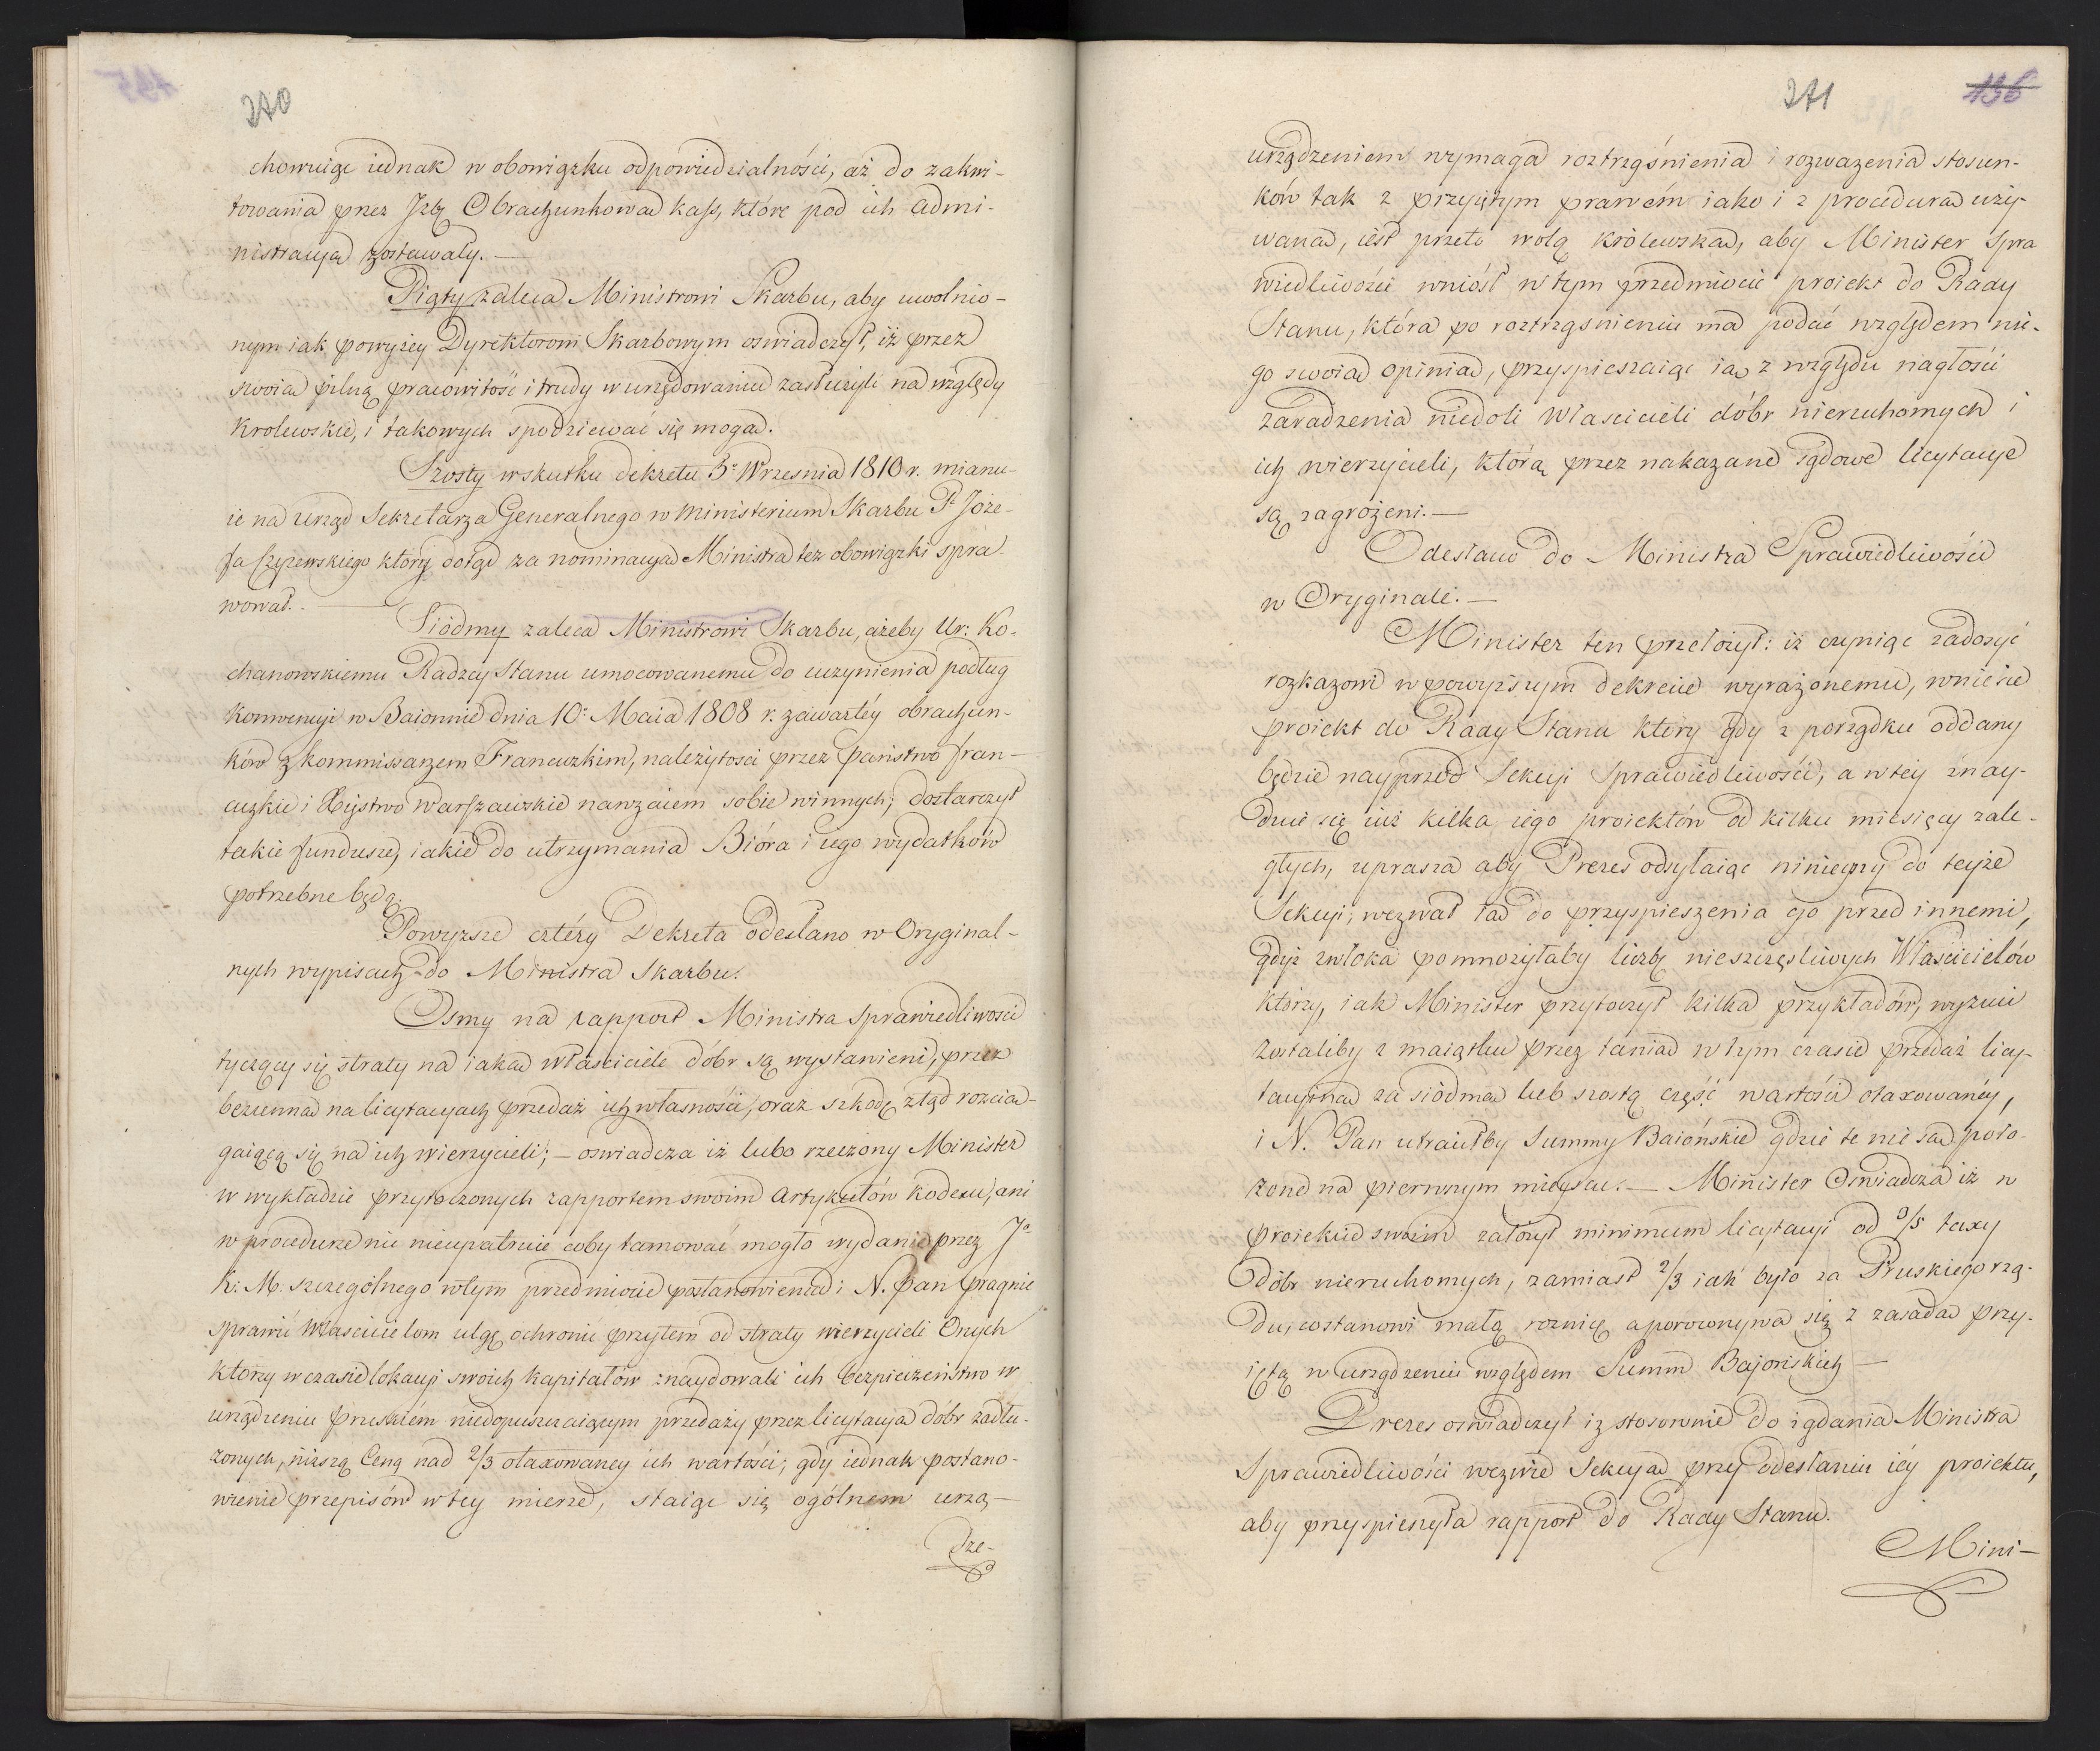 270
chowuiąc iednak w obowiązku odpowiedzialności, aż do zakwi-
towania przez Izbę Obrachunkową kass, które pod ich admi-
nistracyą zostawały. —
Piąty zaleca Ministrowi Skarbu, aby uwolnio-
nym iak powyżey Dyrektorom Skarbowym oswiadczył, iż przez
swoią pilną pracowitość i trudy w urzędowaniu zasłużyli na względy
Krolewskie, i takowych spodziewać się mogą.
Szosty wskutku dekretu 5º Wrzesnia 1810 r. mianu-
ie na Urząd Sekretarza Generalnego w Ministerium Skarbu Pª Joze-
fa który dotąd za nominacyą Ministra też obowiązki spra-
wował. —
Siódmy zaleca Ministrowi Skarbu, ażeby Ur: Ko-
chanowskiemu Radzcy Stanu umocowanemu do uczynienia podług
Konwencyi w Baionnie dnia 10º Maia 1808 r. zawartéy obrachun-
ków z kommissarzem Francuzkim, należytosci przez państwo fran-
cuzkie i Xięstwo Warszawskie nawzaiem sobie winnych, dostarczył
takie fundusze, iakie do utrzymania Bióra i iego wydatków
potrzebne będą.
Powyzsze cztéry Dekreta odesłano w Oryginal-
nych wypisach do Ministra Skarbu.
Osmy na rapport Ministra Sprawiedliwosci
tyczący się straty na iaką właściciele dóbr są wystawieni, przez
bezcenną na licytacyach przedaż ich własności, oraz szkodę ztąd rozcią-
gaiącą się na ich wierzycieli; — oswiadcza iż lubo rzeczony Minister
w wykładzie przytoczonych rapportem swoim Artykułów Kodexu, ani
w procedurze nic nieupatruie coby tamować mogło wydanie przez Jº
K: M. szczególnego wtym przedmiocie postanowienia i N. Pan pragnie
sprawić Włascicielom ulgę ochronić przytem od straty wierzycieli Onych
którzy w czasie lokacyi swoich kapitałów znaydowali ich bezpieczeństwo w
urządzeniu pruskiém niedopuszczaiącym przedaży przez licytacyą dóbr zadłu-
żonych, niższą Ceną nad 2/3 otaxowaney ich wartości; gdy iednak postano-
wienie przepisów w tey mierze, staiąc się ogólnem urzą-
dze-
271
136
urządzeniem wymaga roztrząśnienia i rozważenia stosun-
ków tak z przyiętym prawém iako i z procedurą uży-
waną, iest przeto wolą królewską, aby Minister Spra
wiedliwości wniósł w tym przedmiocie proiekt do Rady
Stanu, która po roztrząsnieniu ma podać względem nie-
go swoią opinią, przyspieszaiąc ią z względu nagłości
zaradzenia niedoli Włascicieli dóbr nieruchomych i
ich wierzycieli, którą przez nakazane sądowe licytacye
są zagrożeni. —
Odesłano do Ministra Sprawiedliwości
w Oryginale. —
Minister ten przełożył: iż czyniąc zadosyć
rozkazowi w powyższym dekrecie wyrażonemu, wniesie
proiekt do Rady Stanu który gdy z porządku oddany
będzie nayprzed Sekcyi Sprawiedliwości, a w tey znay-
duie się iuż kilka iego proiektów od kilku miesięcy zale-
głych, uprasza aby Prezes odsyłaiąc ninieyszy do teyże
Sekcyi, wezwał ią do przyspieszenia go przed innemi,
gdyż zwłoka pomnożyłaby liczbę nieszczęsliwych Właścicielów
którzy, iak Minister przytoczył kilka przykładów, wyzuci
zostaliby z maiątku przez tanią w tym czasie przedaż licy-
tacyiną za siódmą lub szostą część wartości otaxowanéy,
i N. Pan utraciłby Summy Baiońskie gdzie te nie są poło-
żone na pierwszym mieyscu. — Minister Oswiadcza iż w
proiekcie swoim założył minimum licytacyi od 3/5 taxy
Dóbr nieruchomych, zamiast 2/3 iak było za Pruskiego rzą-
du, co stanowi małą roznicę a porownywa się z zasadą przy-
iętą w urządzeniu względem Summ Bajońskich —
Prezes oswiadczył iz stosownie do iądania Ministra
Sprawiedliwości wezwie Sekcyą przy odesłaniu iéy proiektu,
aby przyspieszyła rapport do Rady Stanu.
Mini-